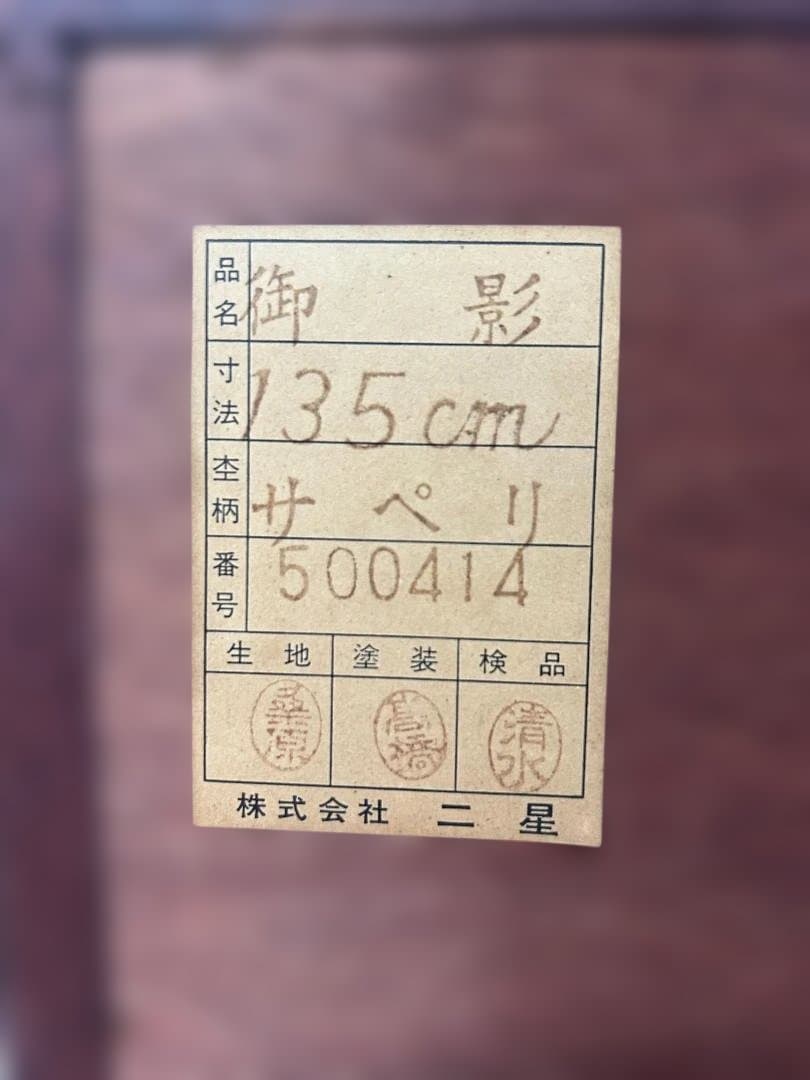 品名 御影
寸法 135cm
杢柄 サペリ
番号 500414
生地 塗装 検品
桑原 高橋 清水
株式会社 二星